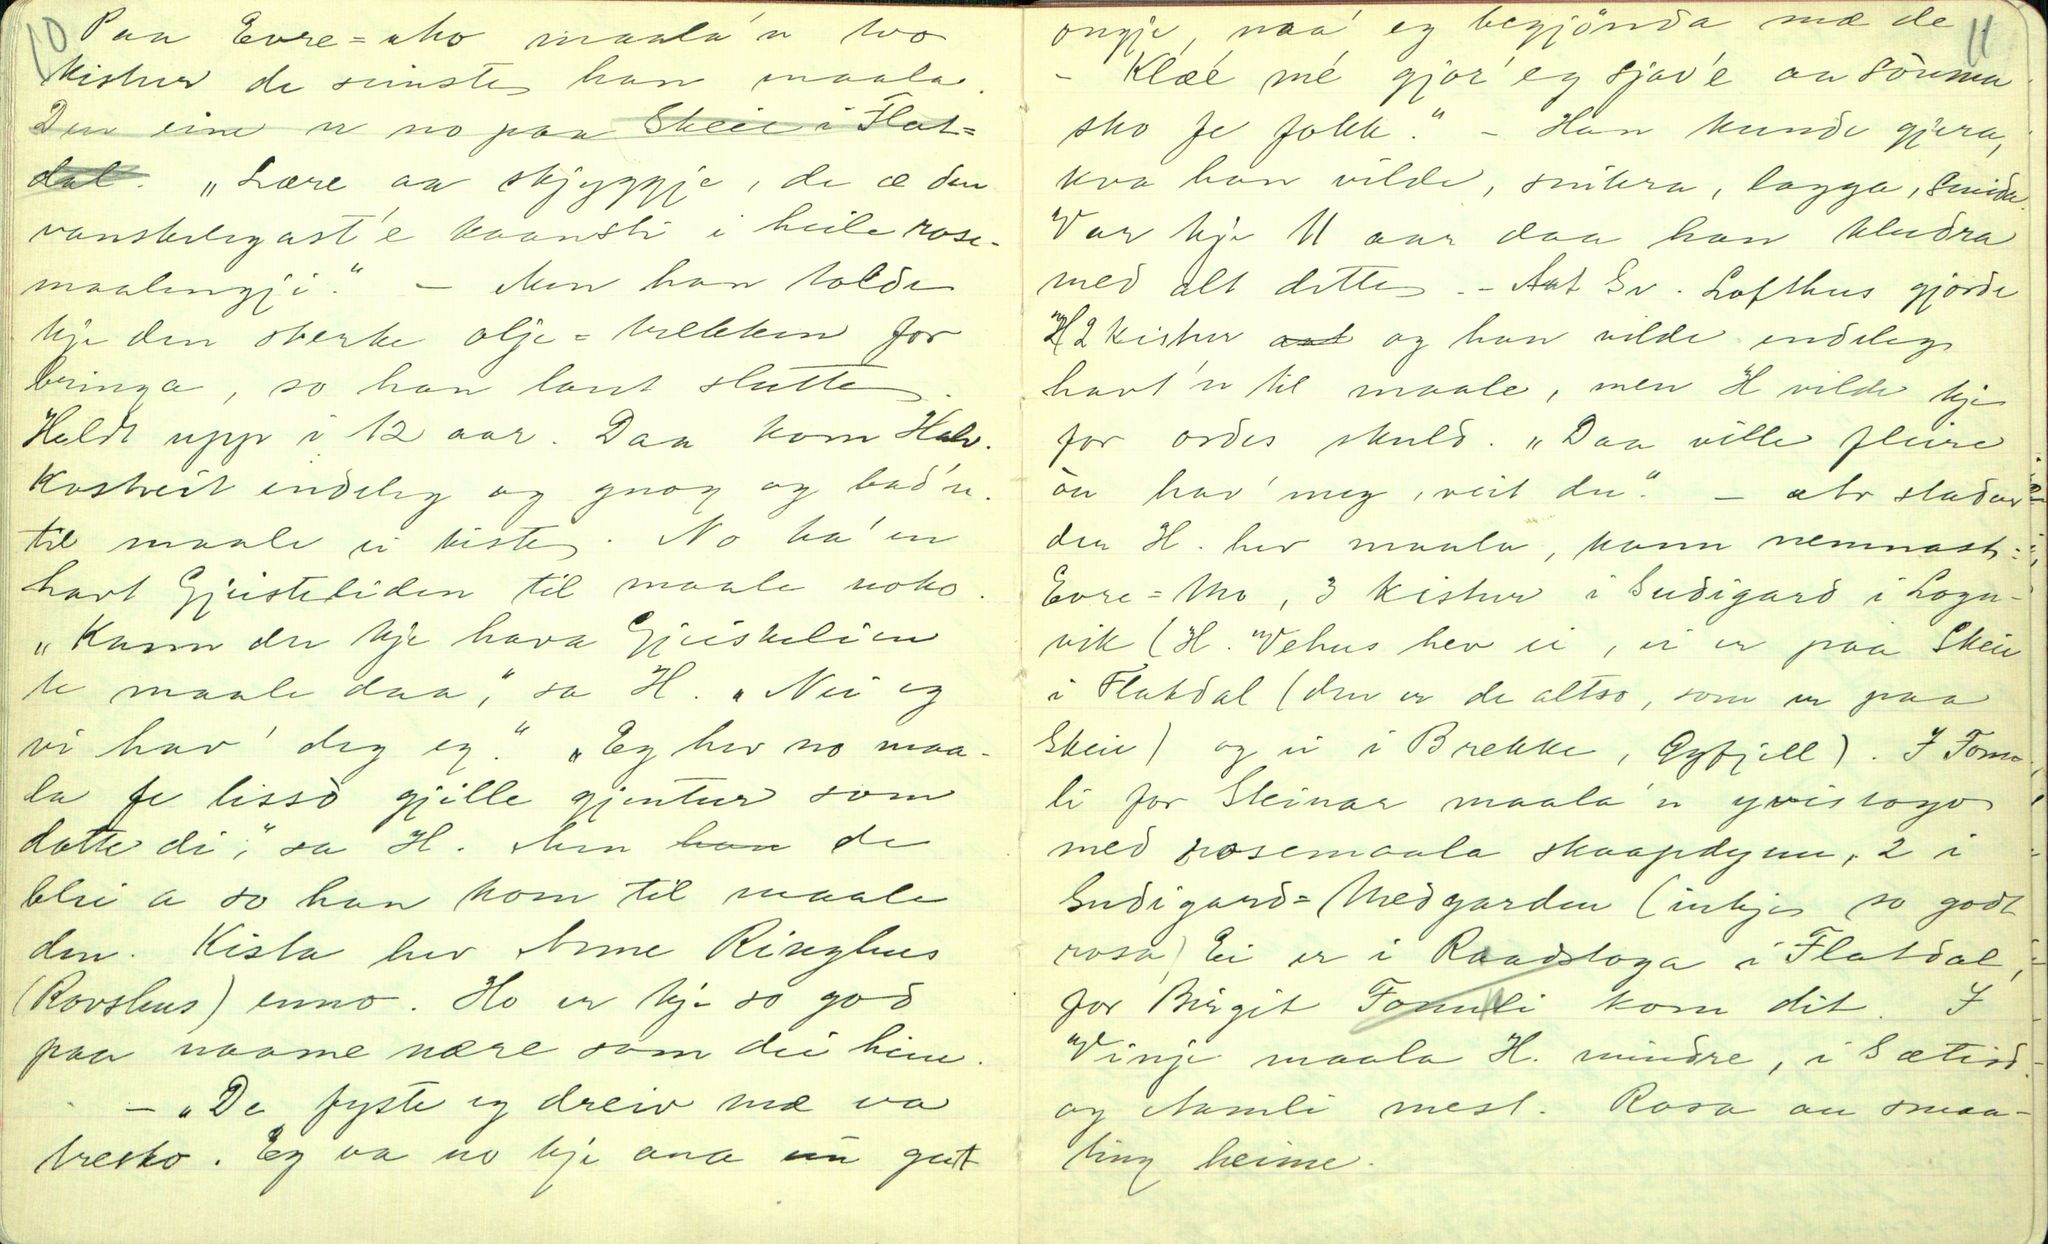 10
Paa Evre=Mo maala'n tvo
kistur de seinste han maala.
Den eine er no paa Skeie i Flat=
dal. „Lære aa skjyggje, de æ den
vanskelegast'e kaansti i heile rose-
maalingji." – Men han tolde
kje den sterke olje=trekken for
bringa, so han laut slutte.
Heldt upp i 12 aar. Daa kom Halv.
Kostveit endeleg og gnog og bad'n
til maale ei kiste. No ha'en
havt Gjeisteliden til maale noko.
„Kann du kje hava Gjeisteliden
te maale daa," sa H. „Nei eg
vi hav' deg eg." „Eg hev no maa-
la fe lissò gjille gjentur som
dotte di," sa H. Men han de
blei a so han kom til maale
den. Kista hev Anne Ringhus
(Rovshus) enno. Ho er kje so god
paa naame nære som dei hine.
– „De fyste eg dreiv mæ va
tresko. Eg va no kje ana ein gut
11
ongje, naa' eg begjönda mæ de
– Klæé mé gjor' eg sjav'e aa söuma
sko fe folk." – Han kunde gjera,
kva han vilde, snikra, lagga, smida.
Var kje 11 aar daa han kludra
med alt dette. – Aat Sv. Lofthus gjorde
H 2 kistur aat og han vilde endeleg
havt'n til maale, men H vilde kje
for ordes skuld. „Daa ville fleire
òu hav' meg, veit du." – Av stadur
der H. hev maala, kann nemnast:
Evre=Mo, 3 kistur i Sudigard i Logn-
vik (H. Vehus hev ei, ei er paa Skeie
i Flatdal (den er de altso, som er paa
Skeie) og ei i Brekke, Øyfjell). I Tome-
li for Steinar maala'n yvistogo
med rosemaala skaapdynn, 2 i
Sudigard=Medgarden (inkje so godt
rosa) Ei er i Raadstoga i Flatdal,
for Birgit Tomeli kom dit. I
Vinje maala H. mindre, i Sætisd.
og Aamli mest. Rosa au smaa-
ting heime.